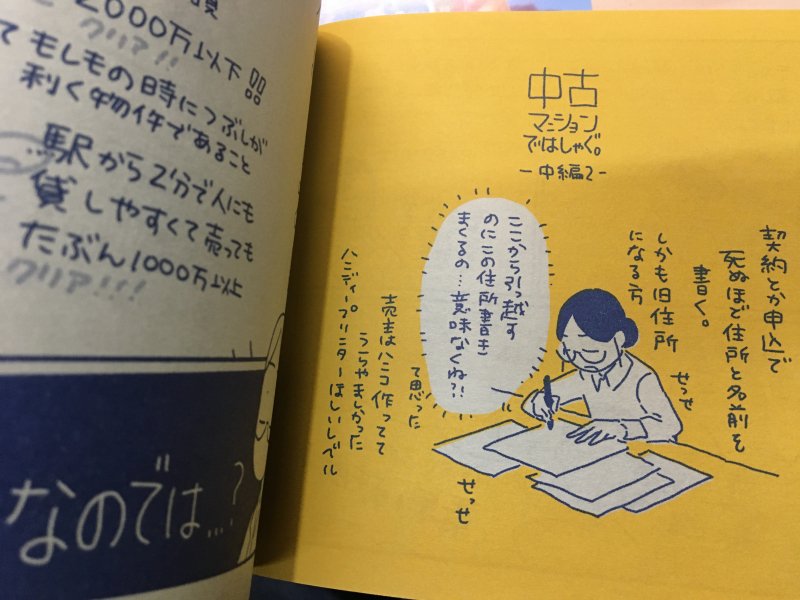 2000万以下!!
クリア!!
て もしもの時につぶしが
利く物件であること
駅から2分で人にも
貸しやすくて売っても
たぶん1000万以上
クリア!!!
なのでは…?
中古
マンション
ではしゃぐ。
-中編2-
契約とか申込で
死ぬほど住所と名前を
書く。
しかも旧住所
になる方
せっせ
ここから引っ越す
のにこの住所書き
まくるの…意味なくね?!
て思った
売主はハンコ作ってて
うらやましかった
ハンディープリンターほしいレベル
せっせ